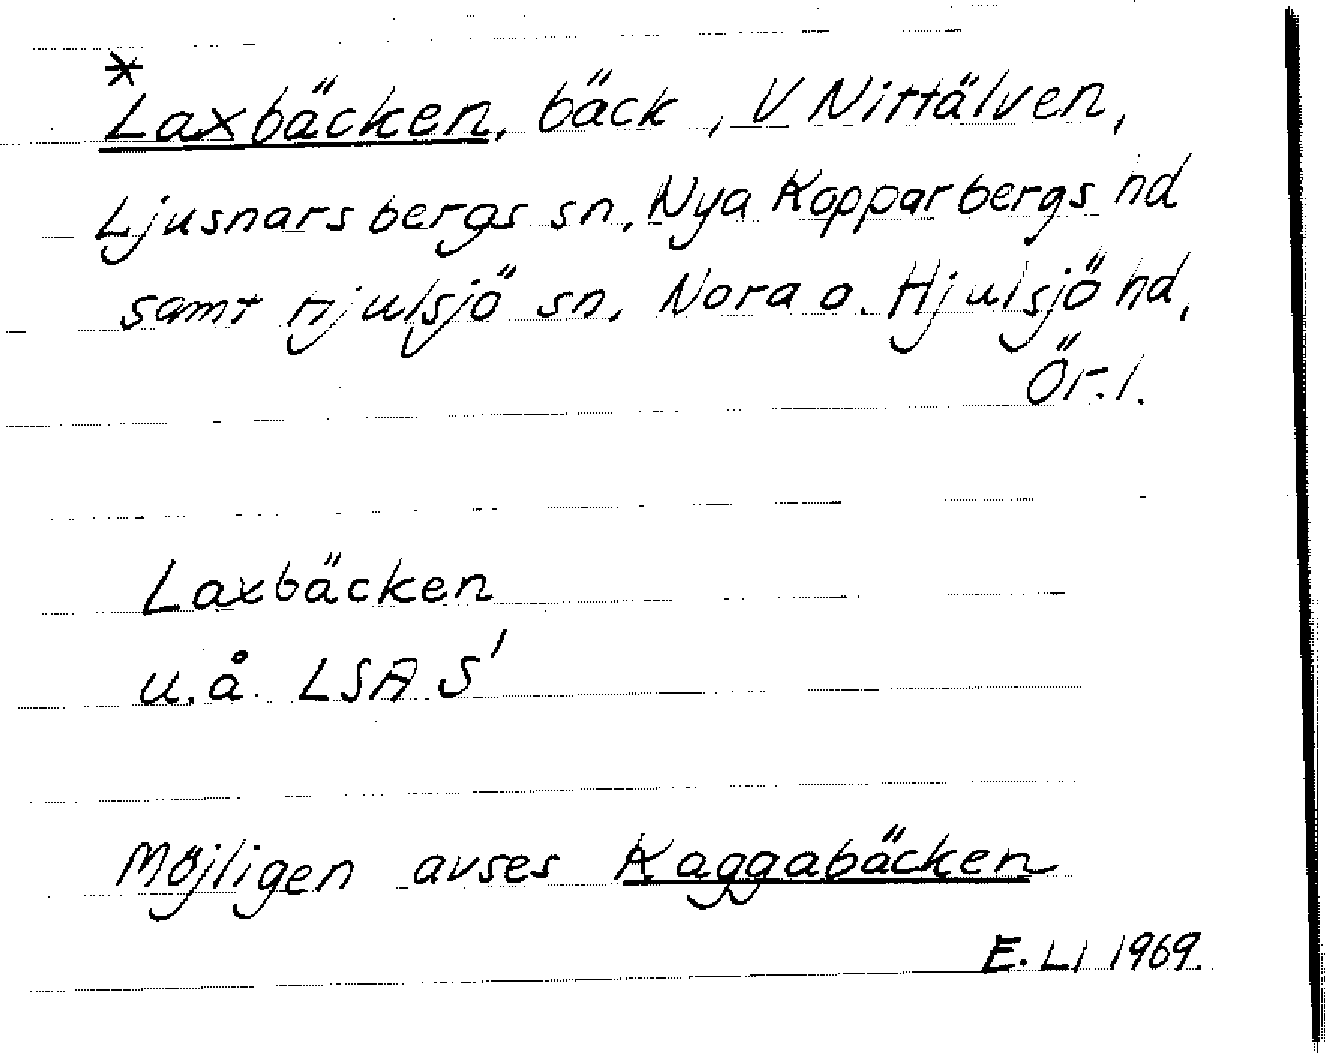 *
Laxbäcken, bäck, V Nittälven,
Ljusnarsbergs sn, Nya Kopparbergs hd
samt Hjulsjö sn, Nora o. Hjulsjö hd,
Ör. l.
Laxbäcken
u. å. LSA S'
Möjligen avses Kaggabäcken
E. LI 1969.